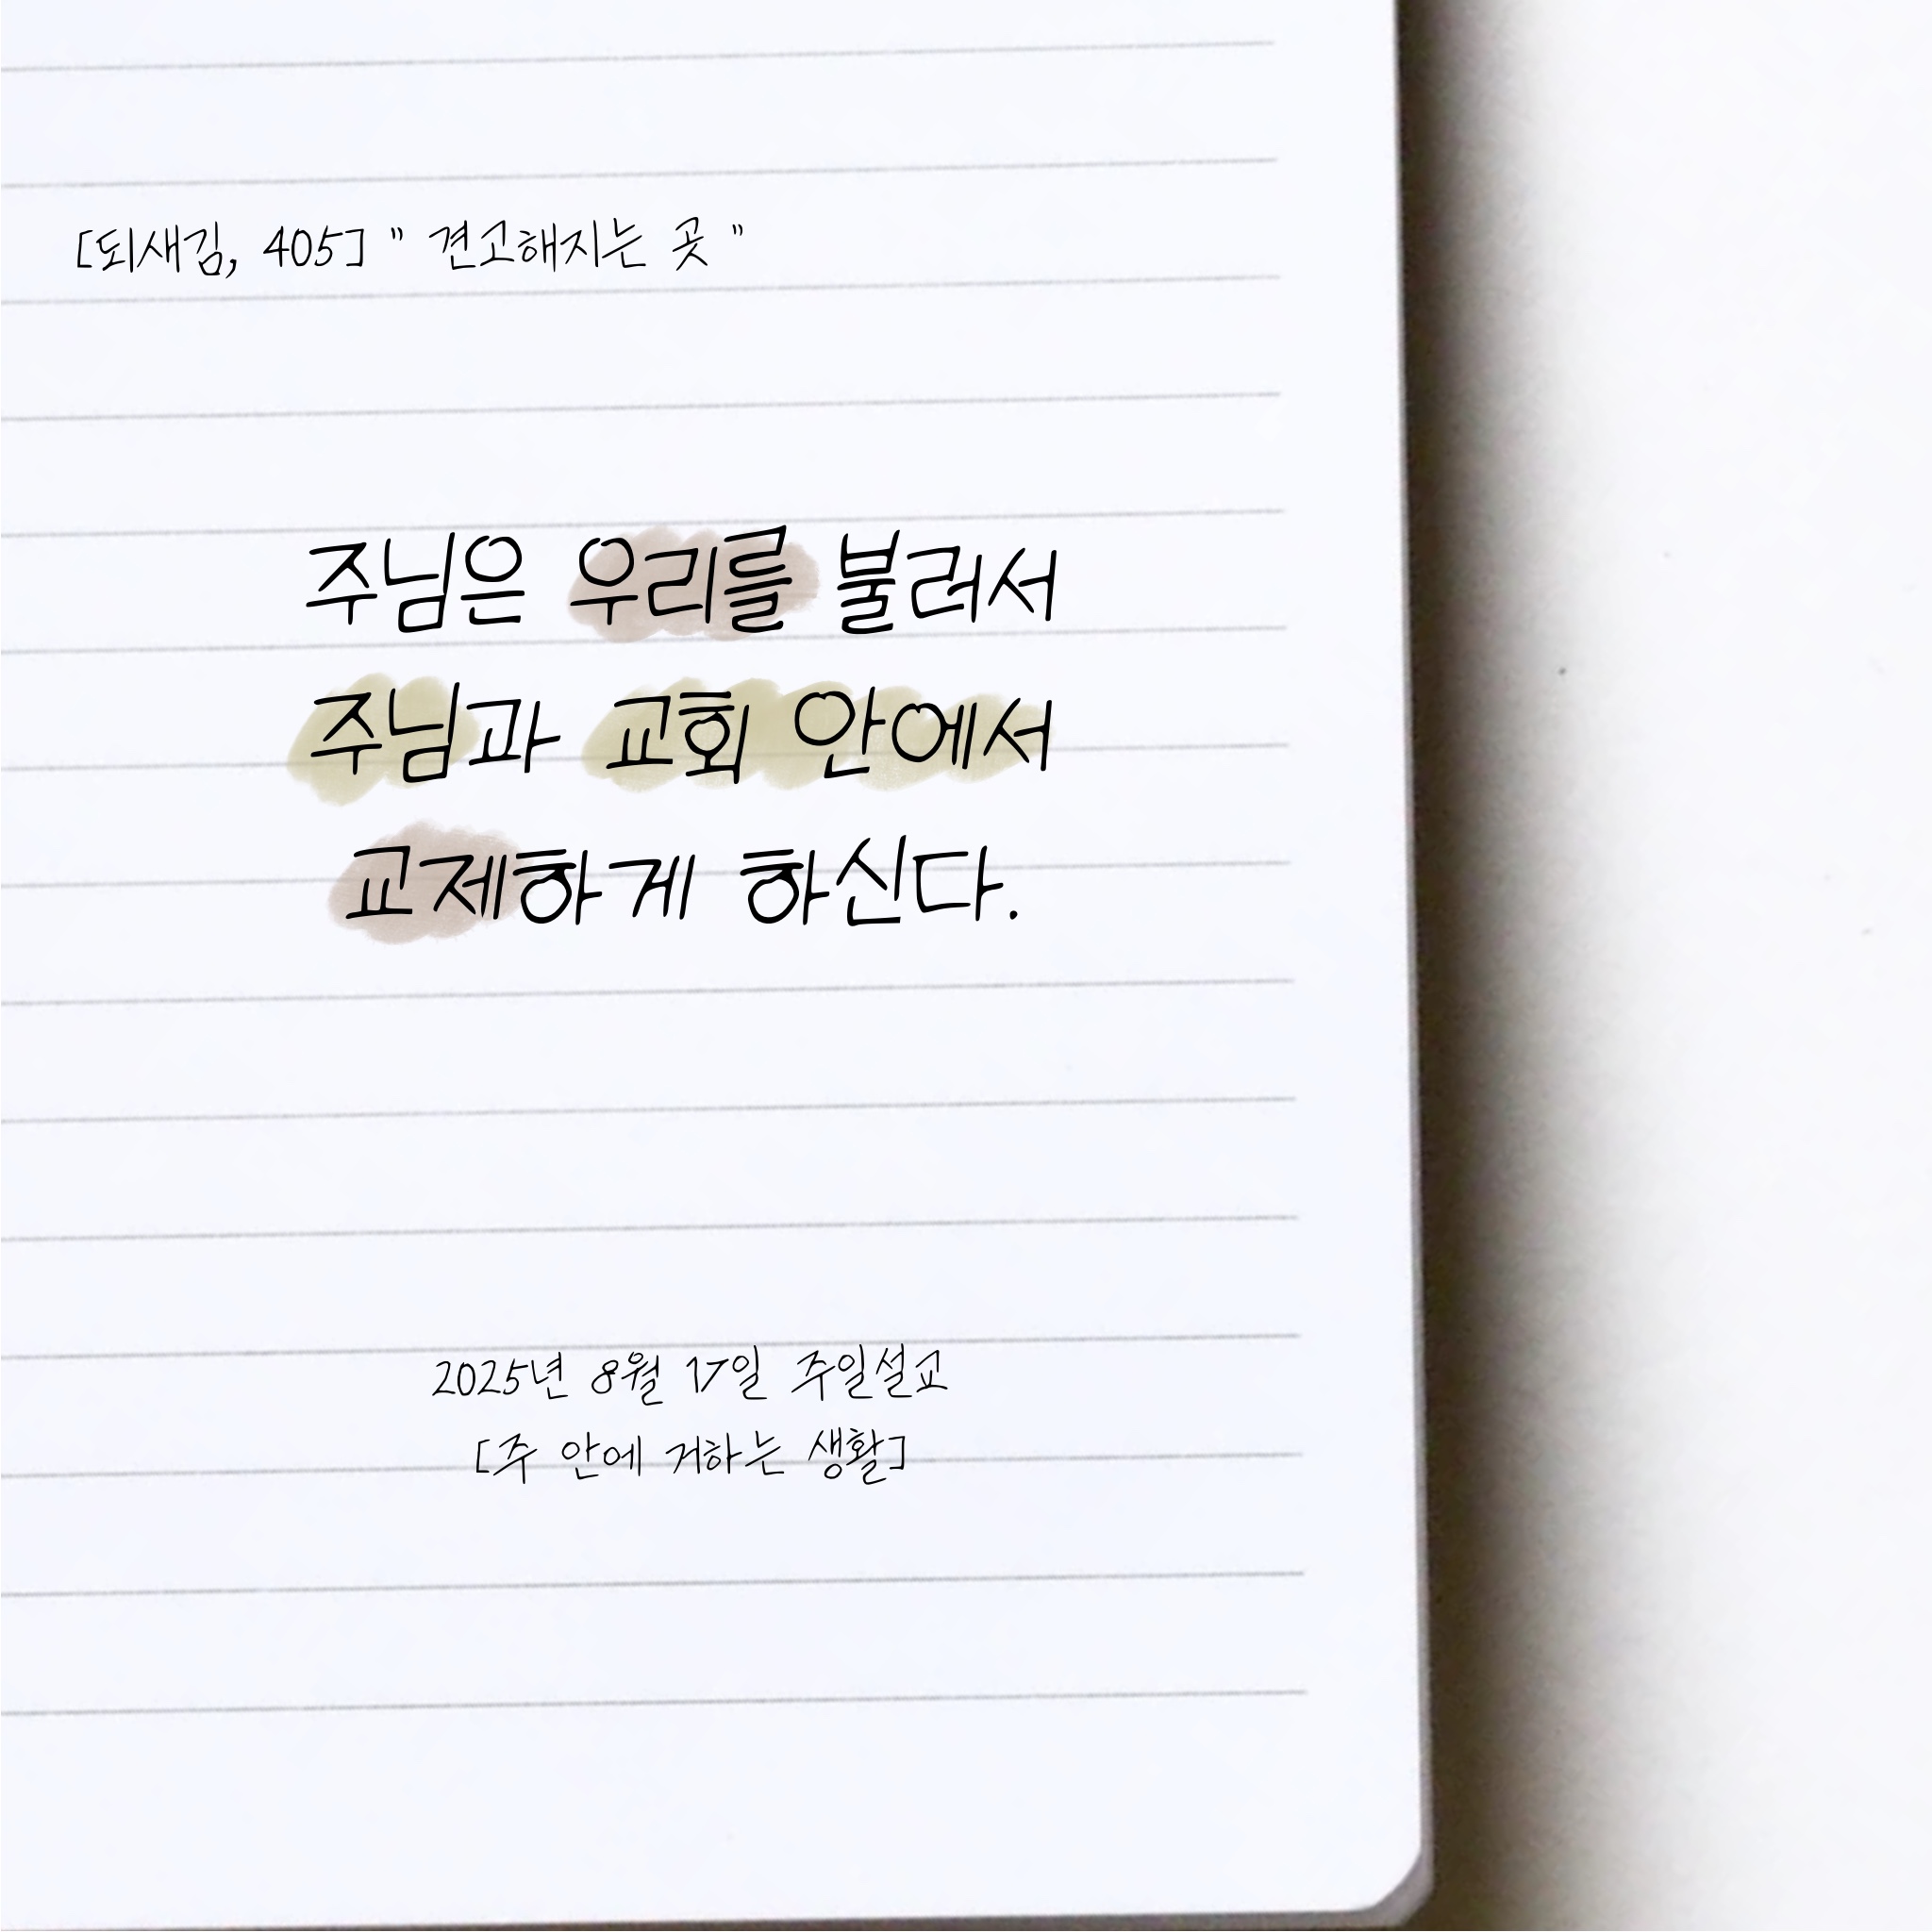 [되새김, 405] " 견고해지는 곳 "
주님은 우리를 불러서
주님과 교회 안에서
교제하게 하신다.
2025년 8월 17일 주일설교
[주 안에 거하는 생활]